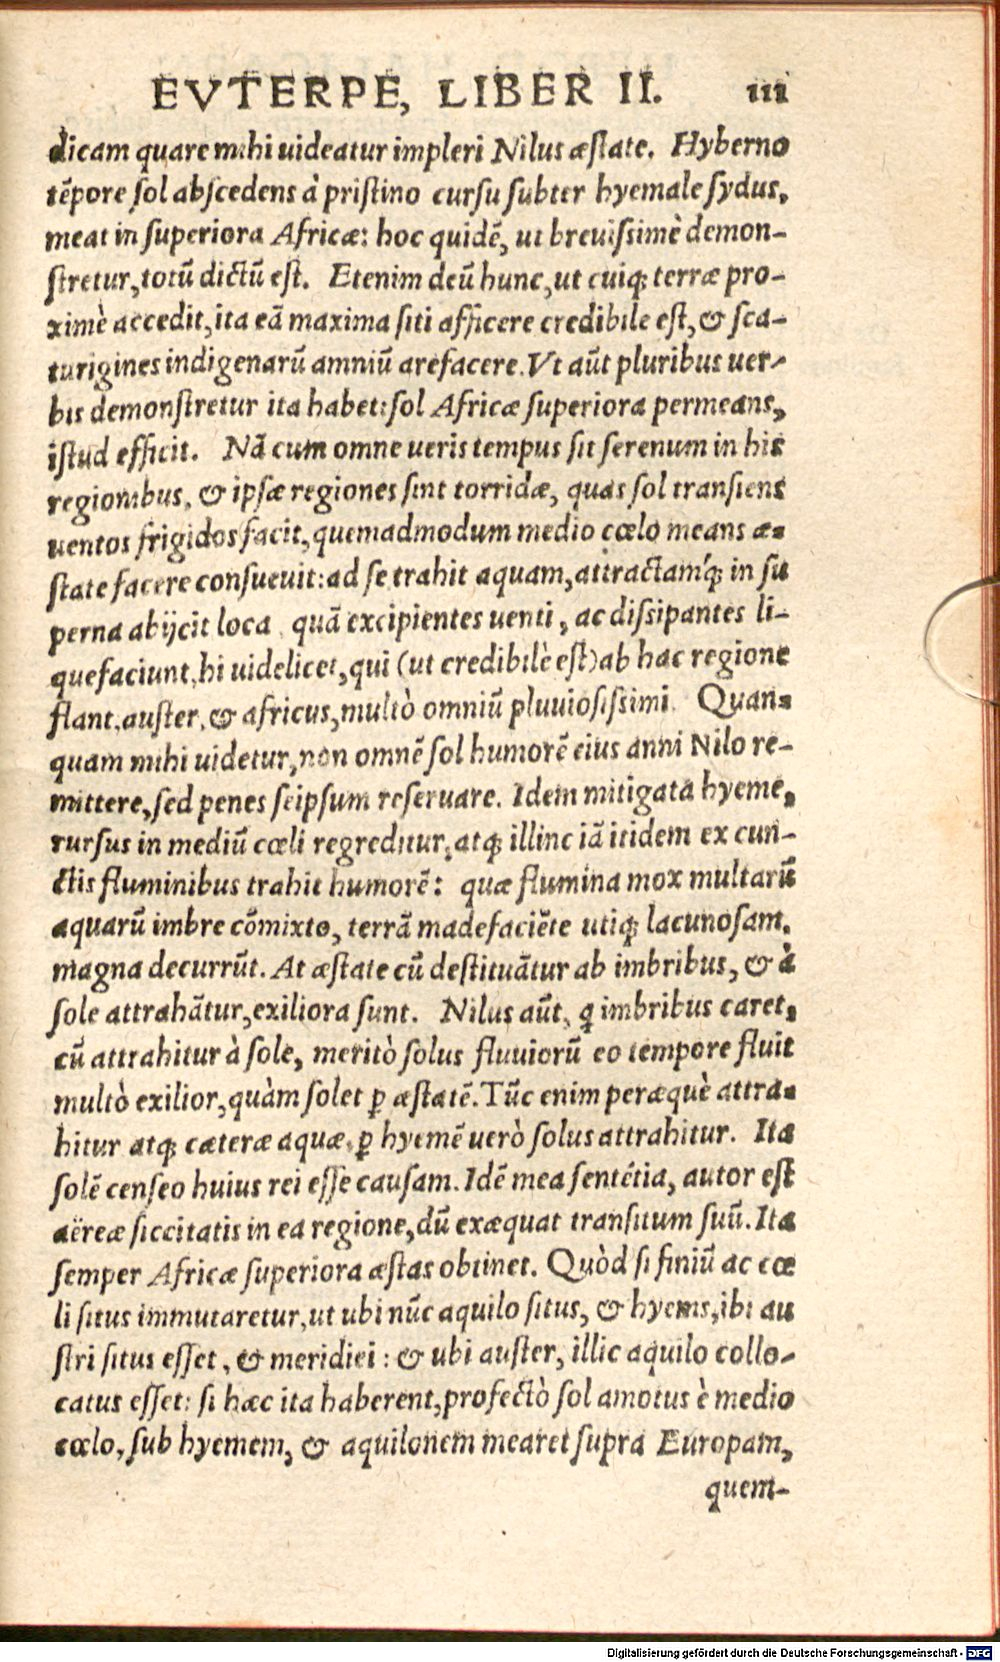 EVTERPE, LIBER II. 111
dicam quare mihi uideatur impleri Nilus æstate. Hyberno
tẽpore sol abscedens à pristino cursu subter hyemale sydus,
meat in superiora Africæ: hoc quidẽ, ut breuissimè demon-
stretur, totũ dictũ est. Etenim deũ hunc, ut cuiq; terræ pro-
ximè accedit, ita eã maxima siti afficere credibile est, & sca-
turigines indigenarũ amniũ arefacere. Vt aũt pluribus uer-
bis demonstretur ita habet: sol Africæ superiora permeans,
istud efficit. Nã cum omne ueris tempus sit serenum in his
regionibus, & ipsæ regiones sint torridæ, quas sol transiens
uentos frigidos facit, quemadmodum medio cœlo means æ-
state facere consueuit: ad se trahit aquam, attractamq́; in su
perna abijcit loca, quã excipientes uenti, ac dissipantes li-
quefaciunt, hi uidelicet, qui (ut credibile est) ab hac regione
flant, auster, & africus, multò omniũ pluuiosissimi. Quan-
quam mihi uidetur, non omnẽ sol humorẽ eius anni Nilo re-
mittere, sed penes seipsum reseruare. Idem mitigata hyeme,
rursus in mediũ cœli regreditur, atq; illinc iã itidem ex cun-
ctis fluminibus trahit humorẽ: quæ flumina mox multarũ
aquarũ imbre cõmixto, terrã madefaciẽte utiq; lacunosam,
magna decurrũt. At æstate cũ destituãtur ab imbribus, & à
sole attrahãtur, exiliora sunt. Nilus aũt, q imbribus caret,
cũ attrahitur à sole, meritò solus fluuiorũ eo tempore fluit
multò exilior, quàm solet ꝑ æstatẽ. Tũc enim peræquè attra-
hitur atq; cæteræ aquæ, ꝑ hyemẽ uerò solus attrahitur. Ita
solẽ censeo huius rei esse causam. Idẽ mea sentétia, autor est
aëreæ siccitatis in ea regione, dũ exæquat transitum suũ. Ita
semper Africæ superiora æstas obtinet. Quòd si finiũ ac cœ
li situs immutaretur, ut ubi nũc aquilo situs, & hyems, ibi au
stri situs esset, & meridiei: & ubi auster, illic aquilo collo-
catus esset: si hæc ita haberent, profectò sol amotus è medio
cœlo, sub hyemem, & aquilonem mearet supra Europam,
quem-
Digitalisierung gefördert durch die Deutsche Forschungsgemeinschaft - DFG